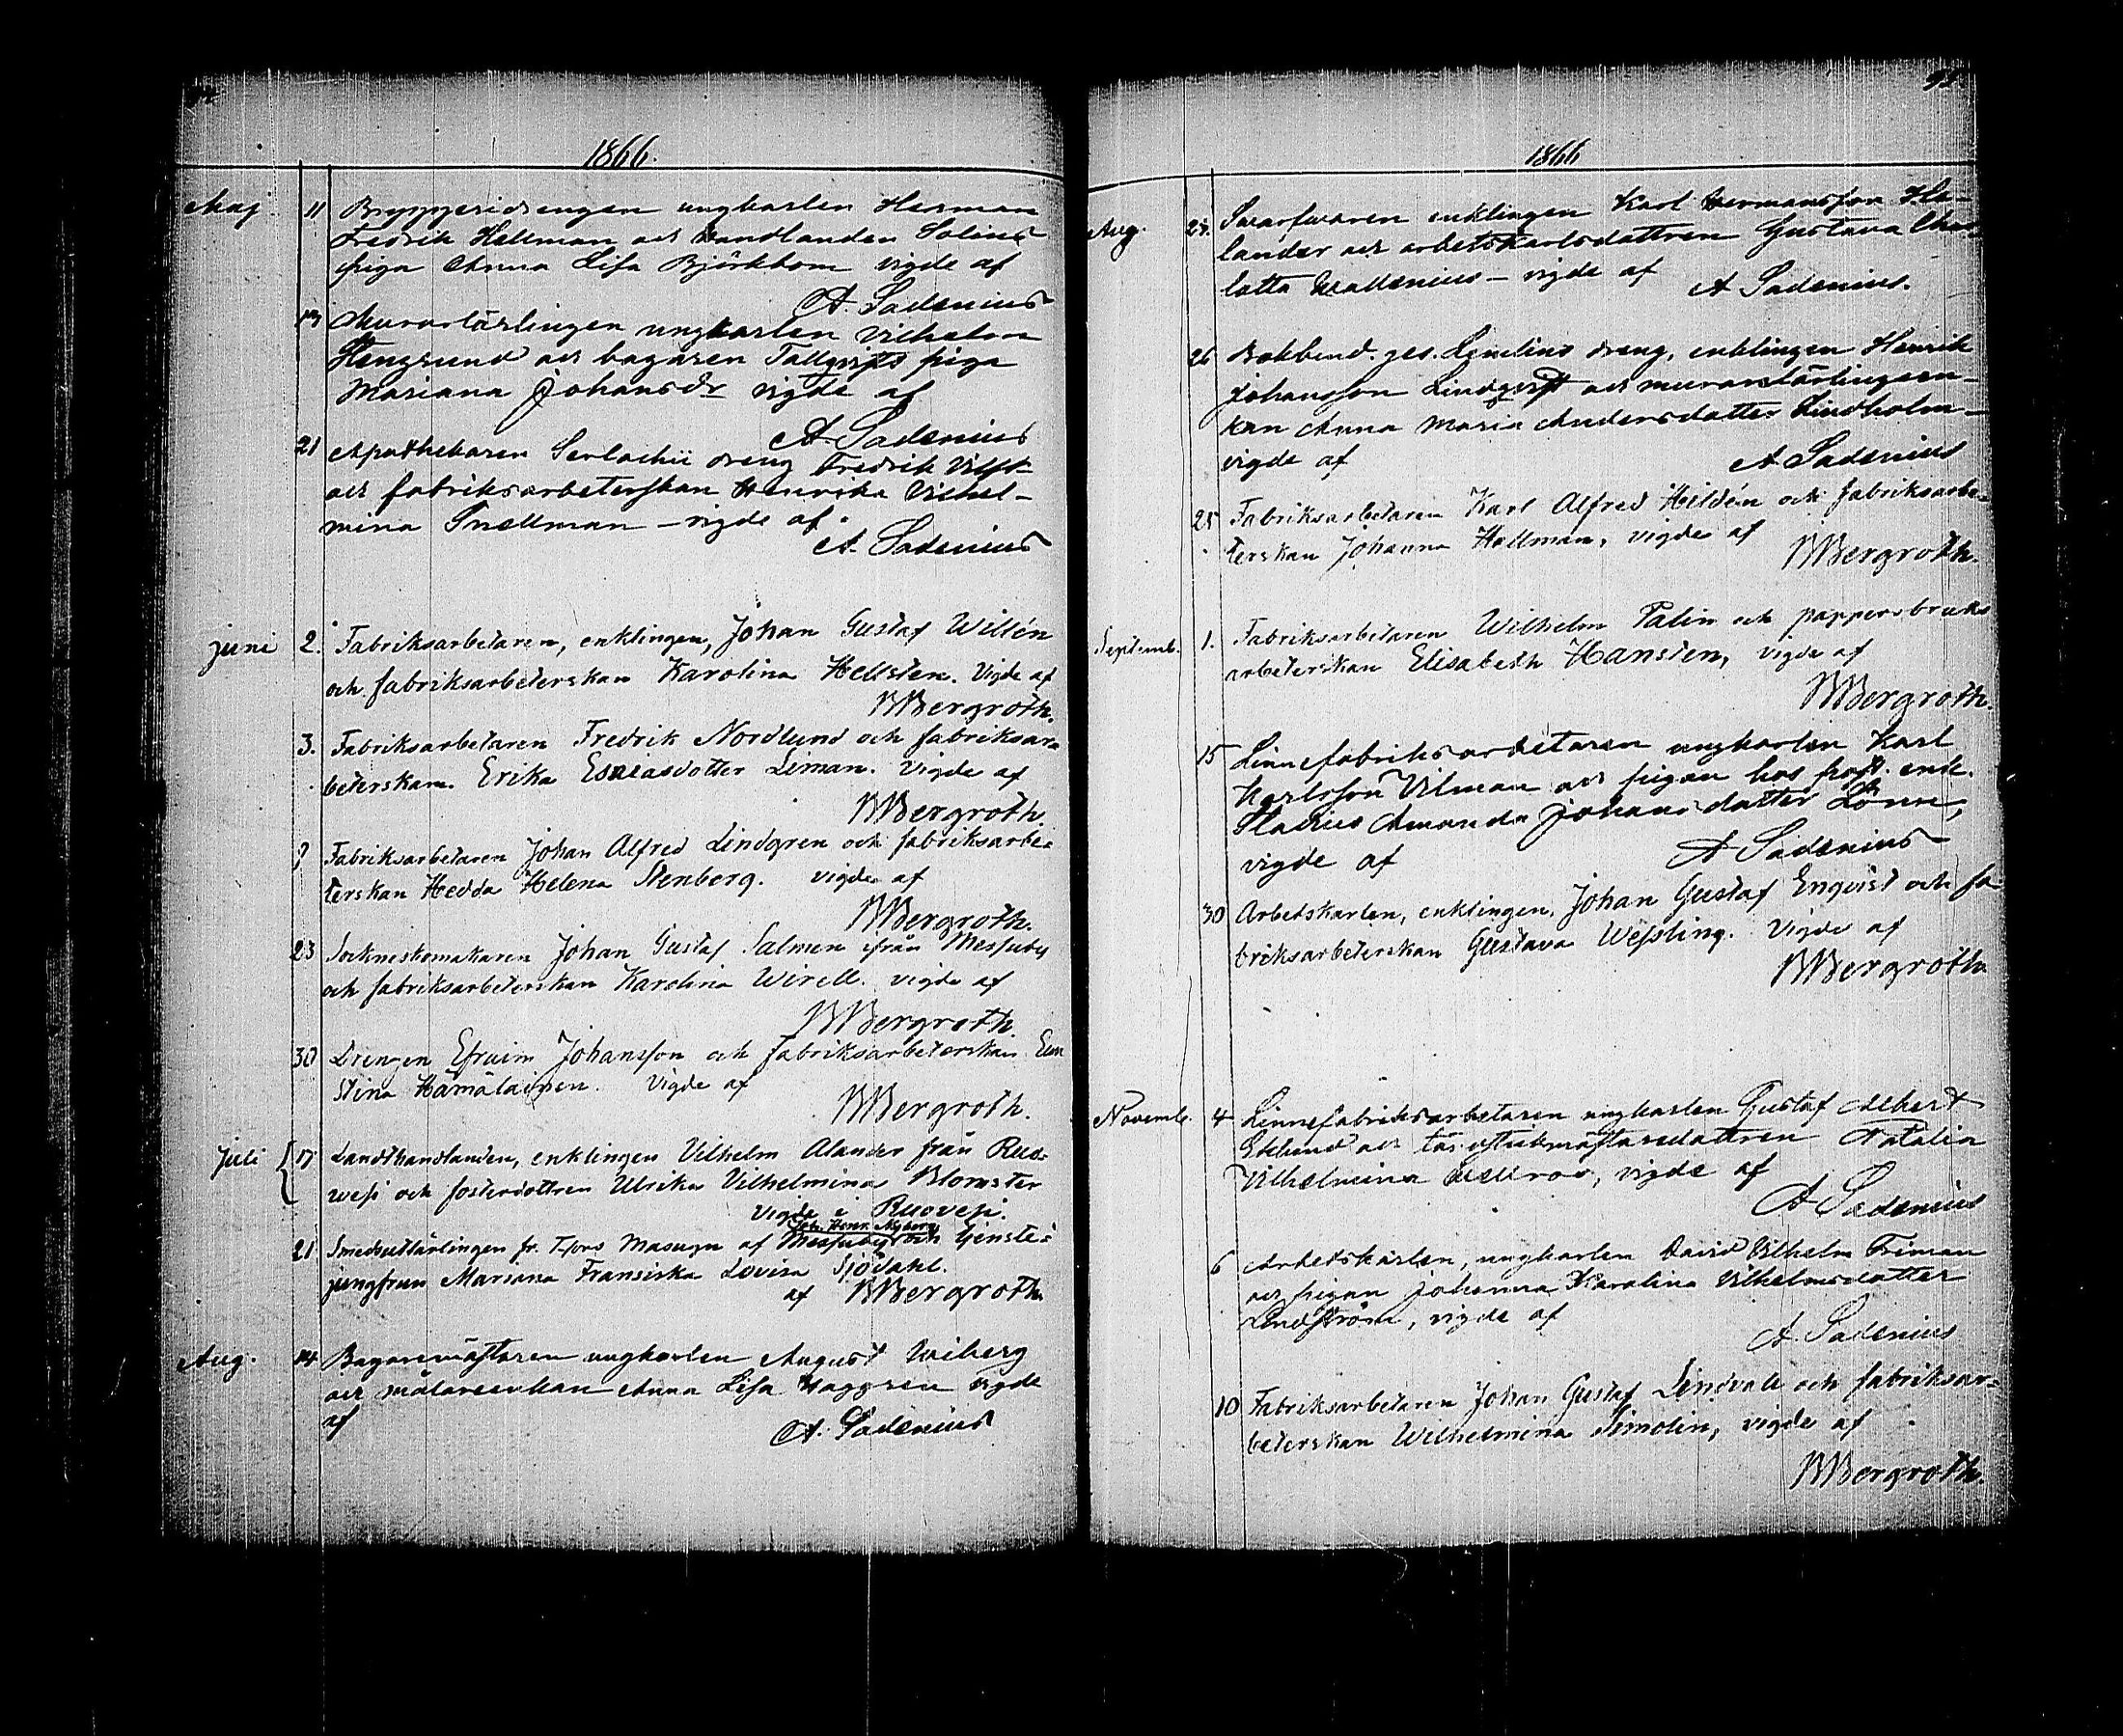 1866.
Maj 11 Bryggeridrengen ungkarlen Herman
Fredrik Hellman och handlanden Solins
piga Anna Lisa Björkbom vigde af
A. Sadenius
Murarlärlingen ungkarlen Vilhelm
Stengrund och bagaren Tallqvists piga
Mariana Johansdr vigde af
A. Sadenius
21 Apothekaren Serlachii dreng Fredrik
och fabriksarbeterskan Henrika Vilhel-
mina Snellman – vigde af
A. Sadenius
juni 2. Fabriksarbetaren, enklingen, Johan Gustaf Willén
och fabriksarbeterskan Karolina Hellsten. Vigde af
BBergroth.
3. Fabriksarbetaren Fredrik Nordlund och fabriksar-
beterskan Erika Esaiasdotter Liman. Vigde af
BBergroth.
Fabriksarbetaren Johan Alfred Lindgren och fabriksarbe-
terskan Hedda Helena Stenberg. vigde af
BBergroth.
23 Sockneskomakaren Johan Gustaf Salmen från Messuby
och fabriksarbeterskan Karolina Wirell. vigde af
BBergroth.
30 Drengen Efraim Johansson och fabriksarbeterskan
Stina Hämäläinen. Vigde af
BBergroth.
juli 17 Landthandlanden, enklingen Vilhelm Alander från Ruo-
wesi och fosterdottren Ulrika Vilhelmina Blomster
vigde i Ruovesi.
Joh. Henr. Nyberg
21 Smedslärlingen fr. T-fors Masugn af Messuby och tjenste-
jungfrun Mariana Fransiska Lovisa Sjödahl.
af BBergroth
Aug. 14 Bagaremästaren ungkarlen August Wiberg
och målareenkan Anna Lisa Haggren vigde
af
A. Sadenius
1866
Aug. Svarfvaren enklingen Karl Hermansson He-
lander och arbetskarlsdottren Gustava Char-
lotta Wallenius – vigde af A Sadenius.
26 Bokbind. ges. Lindlins dreng, enklingen Henrik
Johansson Lindqvist och murarelärlingsen-
kan Anna Maria Andersdotter Lindholm –
vigde af A Sadenius
25 Fabriksarbetaren Karl Alfred Heldén och fabriksarbe-
terskan Johanna Hallman, vigde af
BBergroth.
Septemb. 1. Fabriksarbetaren Wilhelm Palin och pappersbruks
arbeterskan Elisabeth Hansten, vigde af
BBergroth.
15 Linnefabriksarbetaren ungkarlen Karl
Karlsson Vilman och pigan hos prost. enk.
Amanda Johansdotter Lönn,
vigde af A Sadenius
30 Arbetskarlen, enklingen, Johan Gustaf Enqvist och fa-
briksarbeterskan Gustava Wessling. Vigde af
BBergroth
Novemb. 4 Linnefabriksarbetaren ungkarlen Gustaf Albert
Eklund och Natalia
Vilhelmina, vigde af
A Sadenius
6 Arbetskarlen, ungkarlen David Vilhelm Friman
och pigan Johanna Karolina Vilhelmsdotter
Lindström, vigde af
A. Sadenius
10 Fabriksarbetaren Johan Gustaf Lindvall och fabriksar-
beterskan Wilhelmina Simolin, vigde af
BBergroth